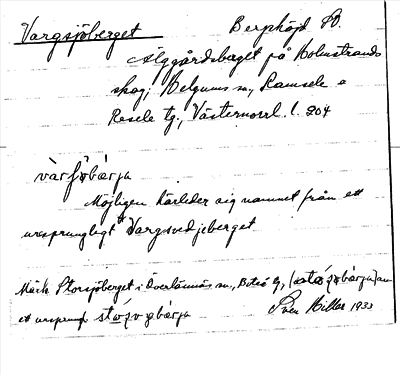 Vargsjöberget Berghöjd
Älggårdsberget på Holmstrands
skog, Helgums sn, Ramsele o
Resele tg., Västernorrl. l. 204
Möjligen härleder sig namnet från ett
ursprungligt *Vargsvedjeberget
Märk Storsjöberget i Överlännäs sn, Boteå tg,
ett ursprungl
Sven Hillas 1933